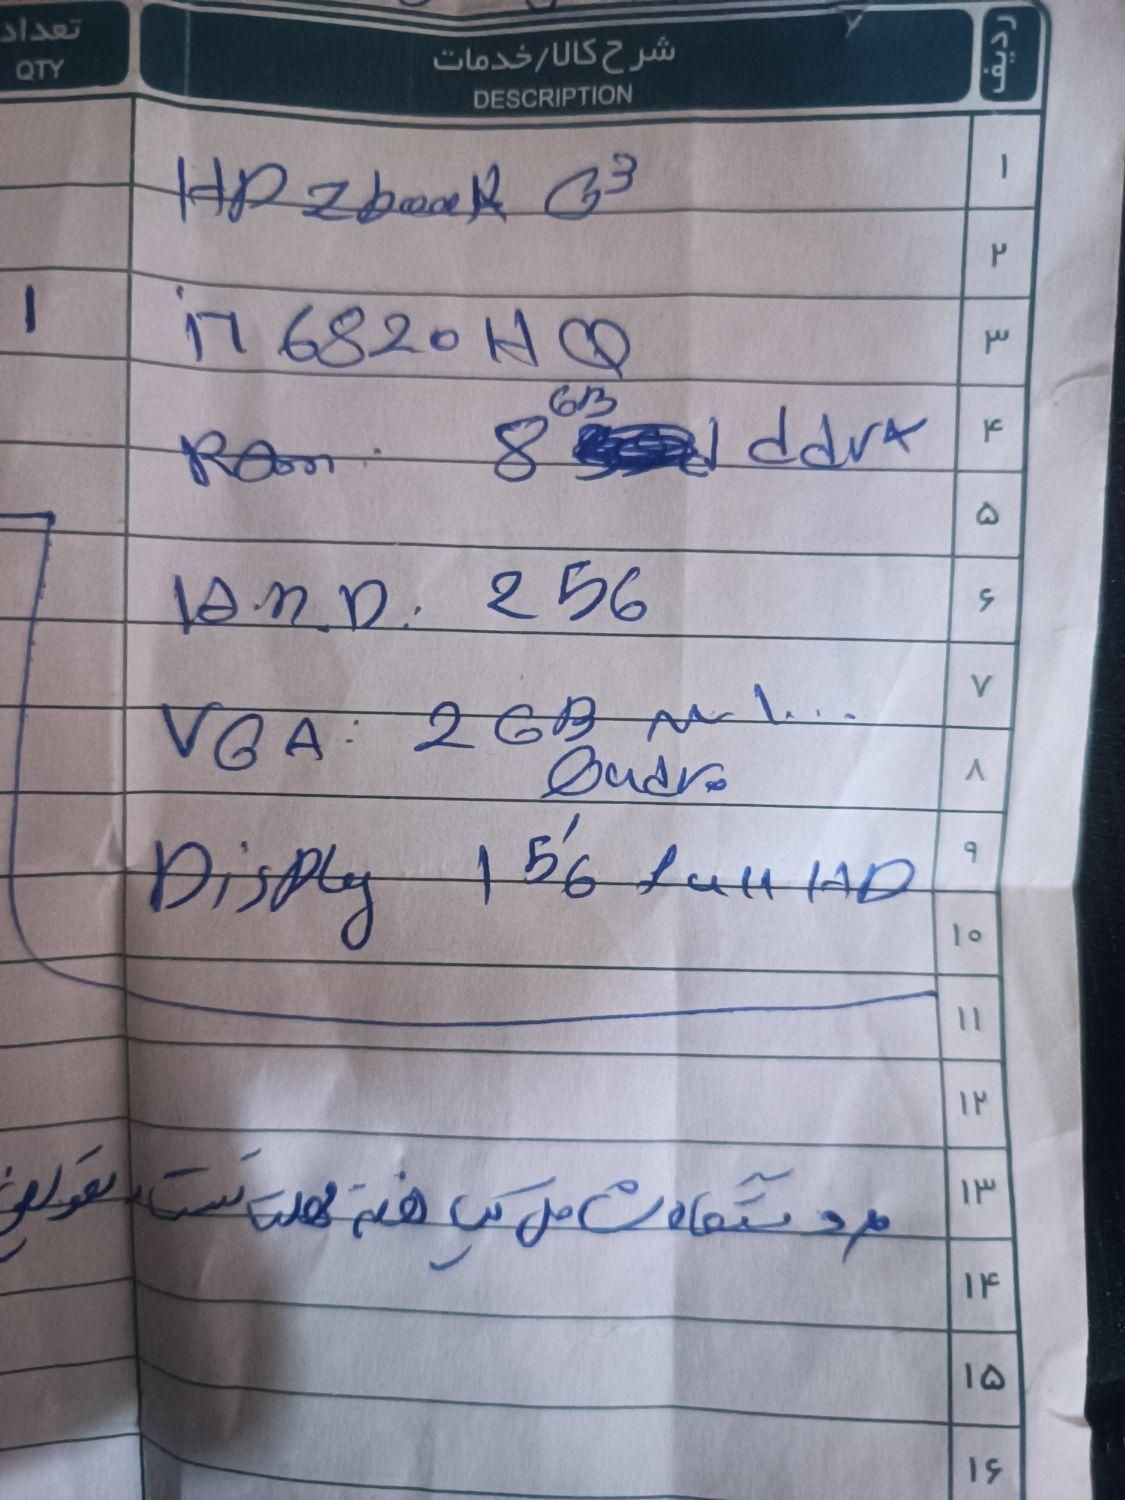 ردیف شرح کالا/خدمات تعداد
DESCRIPTION QTY
۱ HP Zbook G3
۲
۳ i7 6820HQ 1
۴ Ram: 8 GB ddr4
۵
۶ H.D: 256
۷ VGA: 2GB
۸ Quadro
۹ Display 15,6 full HD
۱۰
۱۱
۱۲
۱۳ هفته مهلت تست
۱۴
۱۵
۱۶